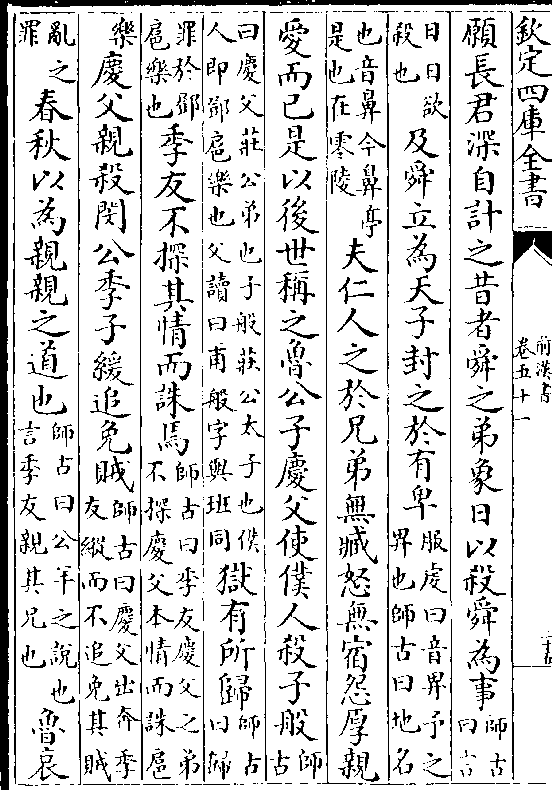 欽定四庫全書 前漢書 卷五十一
願長君深自計之昔者舜之弟象日以殺舜為事師古曰言
日日欲殺也及舜立為天子封之於有卑服虔曰音畀予之畀也師古曰地名
也音鼻今鼻亭是也在零陵夫仁人之於兄弟無臧怒無宿怨厚親
愛而已是以後世稱之魯公子慶父使僕人殺子般師古
曰慶父莊公弟也子般莊公太子也僕人即鄧扈樂也父讀曰甫般字與班同獄有所歸師古曰歸
罪於鄧扈樂也季友不探其情而誅焉師古曰季友慶父之弟不探慶父本情而誅扈
樂慶父親殺閔公季子緩追免賊師古曰慶父出奔季友縱而不追免其賊
亂之罪春秋以為親親之道也師古曰公羊之說也言季友親其兄也魯哀